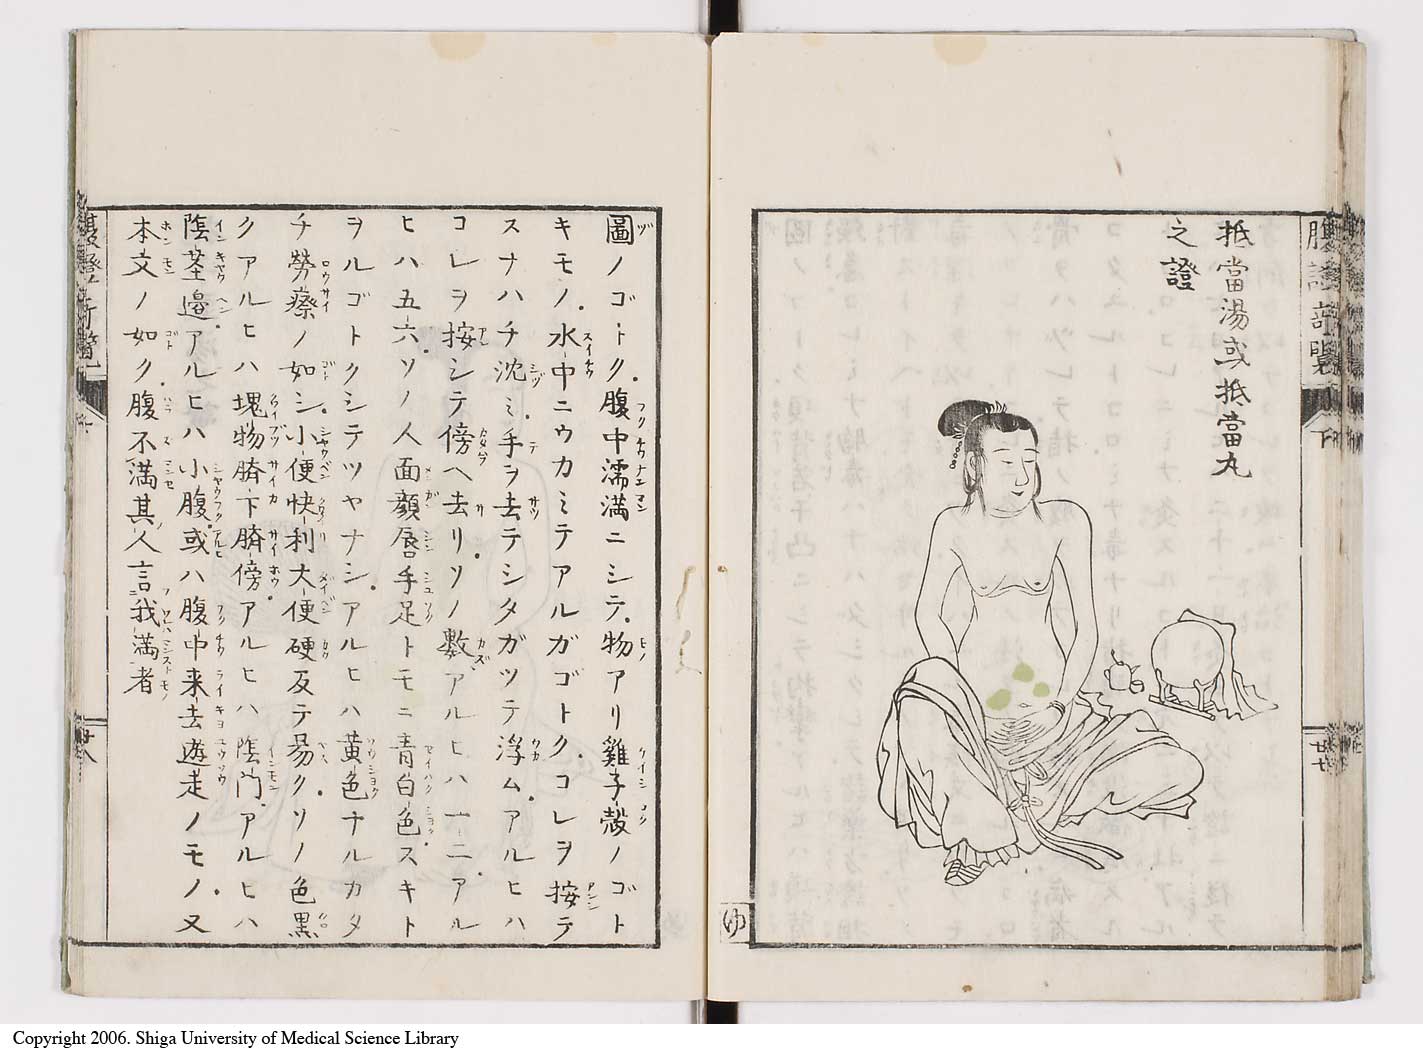 腹證奇覽
下
廿七
抵當湯或抵當丸
之證
ゆ
圖ノゴトク腹中濡満ニシテ物アリ雞子殻ノゴト
キモノ水中ニウカミテアルガゴトクコレヲ按テ
スナハチ沈ミ手ヲ去テシタガツテ浮ムアルヒハ
コレヲ按シテ傍ヘ去リソノ數アルヒハ一二アル
ヒハ五六ソノ人面顔唇手足トモニ青白色スキト
ヲルゴトクシテツヤナシアルヒハ黄色ナルカタ
チ勞瘵ノ如シ小便快利大便硬反テ易クソノ色黒
クアルヒハ塊物臍下臍傍アルヒハ陰門アルヒハ
陰莖邉アルヒハ小腹或ハ腹中来去遊走ノモノ又
本文ノ如ク腹不満其人言我満者
廿八
Copyright 2006. Shiga University of Medical Science Library